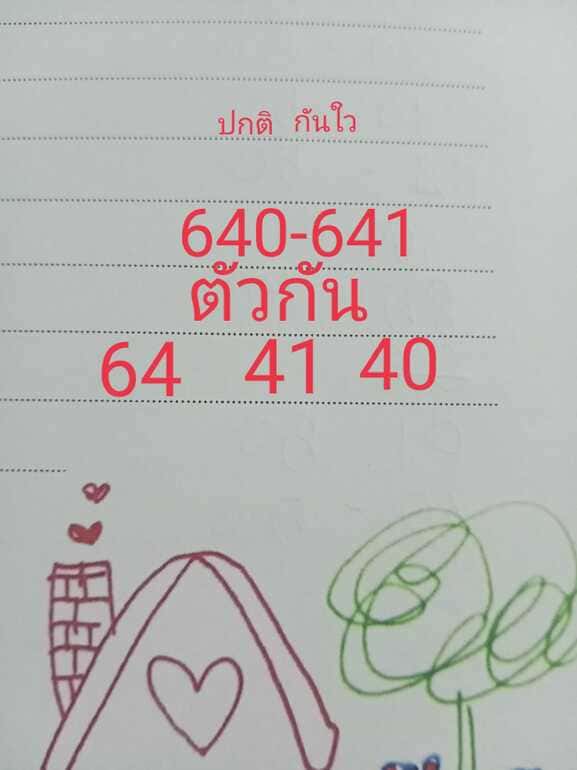 ปกติ กันใว
640-641
ตัวกัน
64 41 40